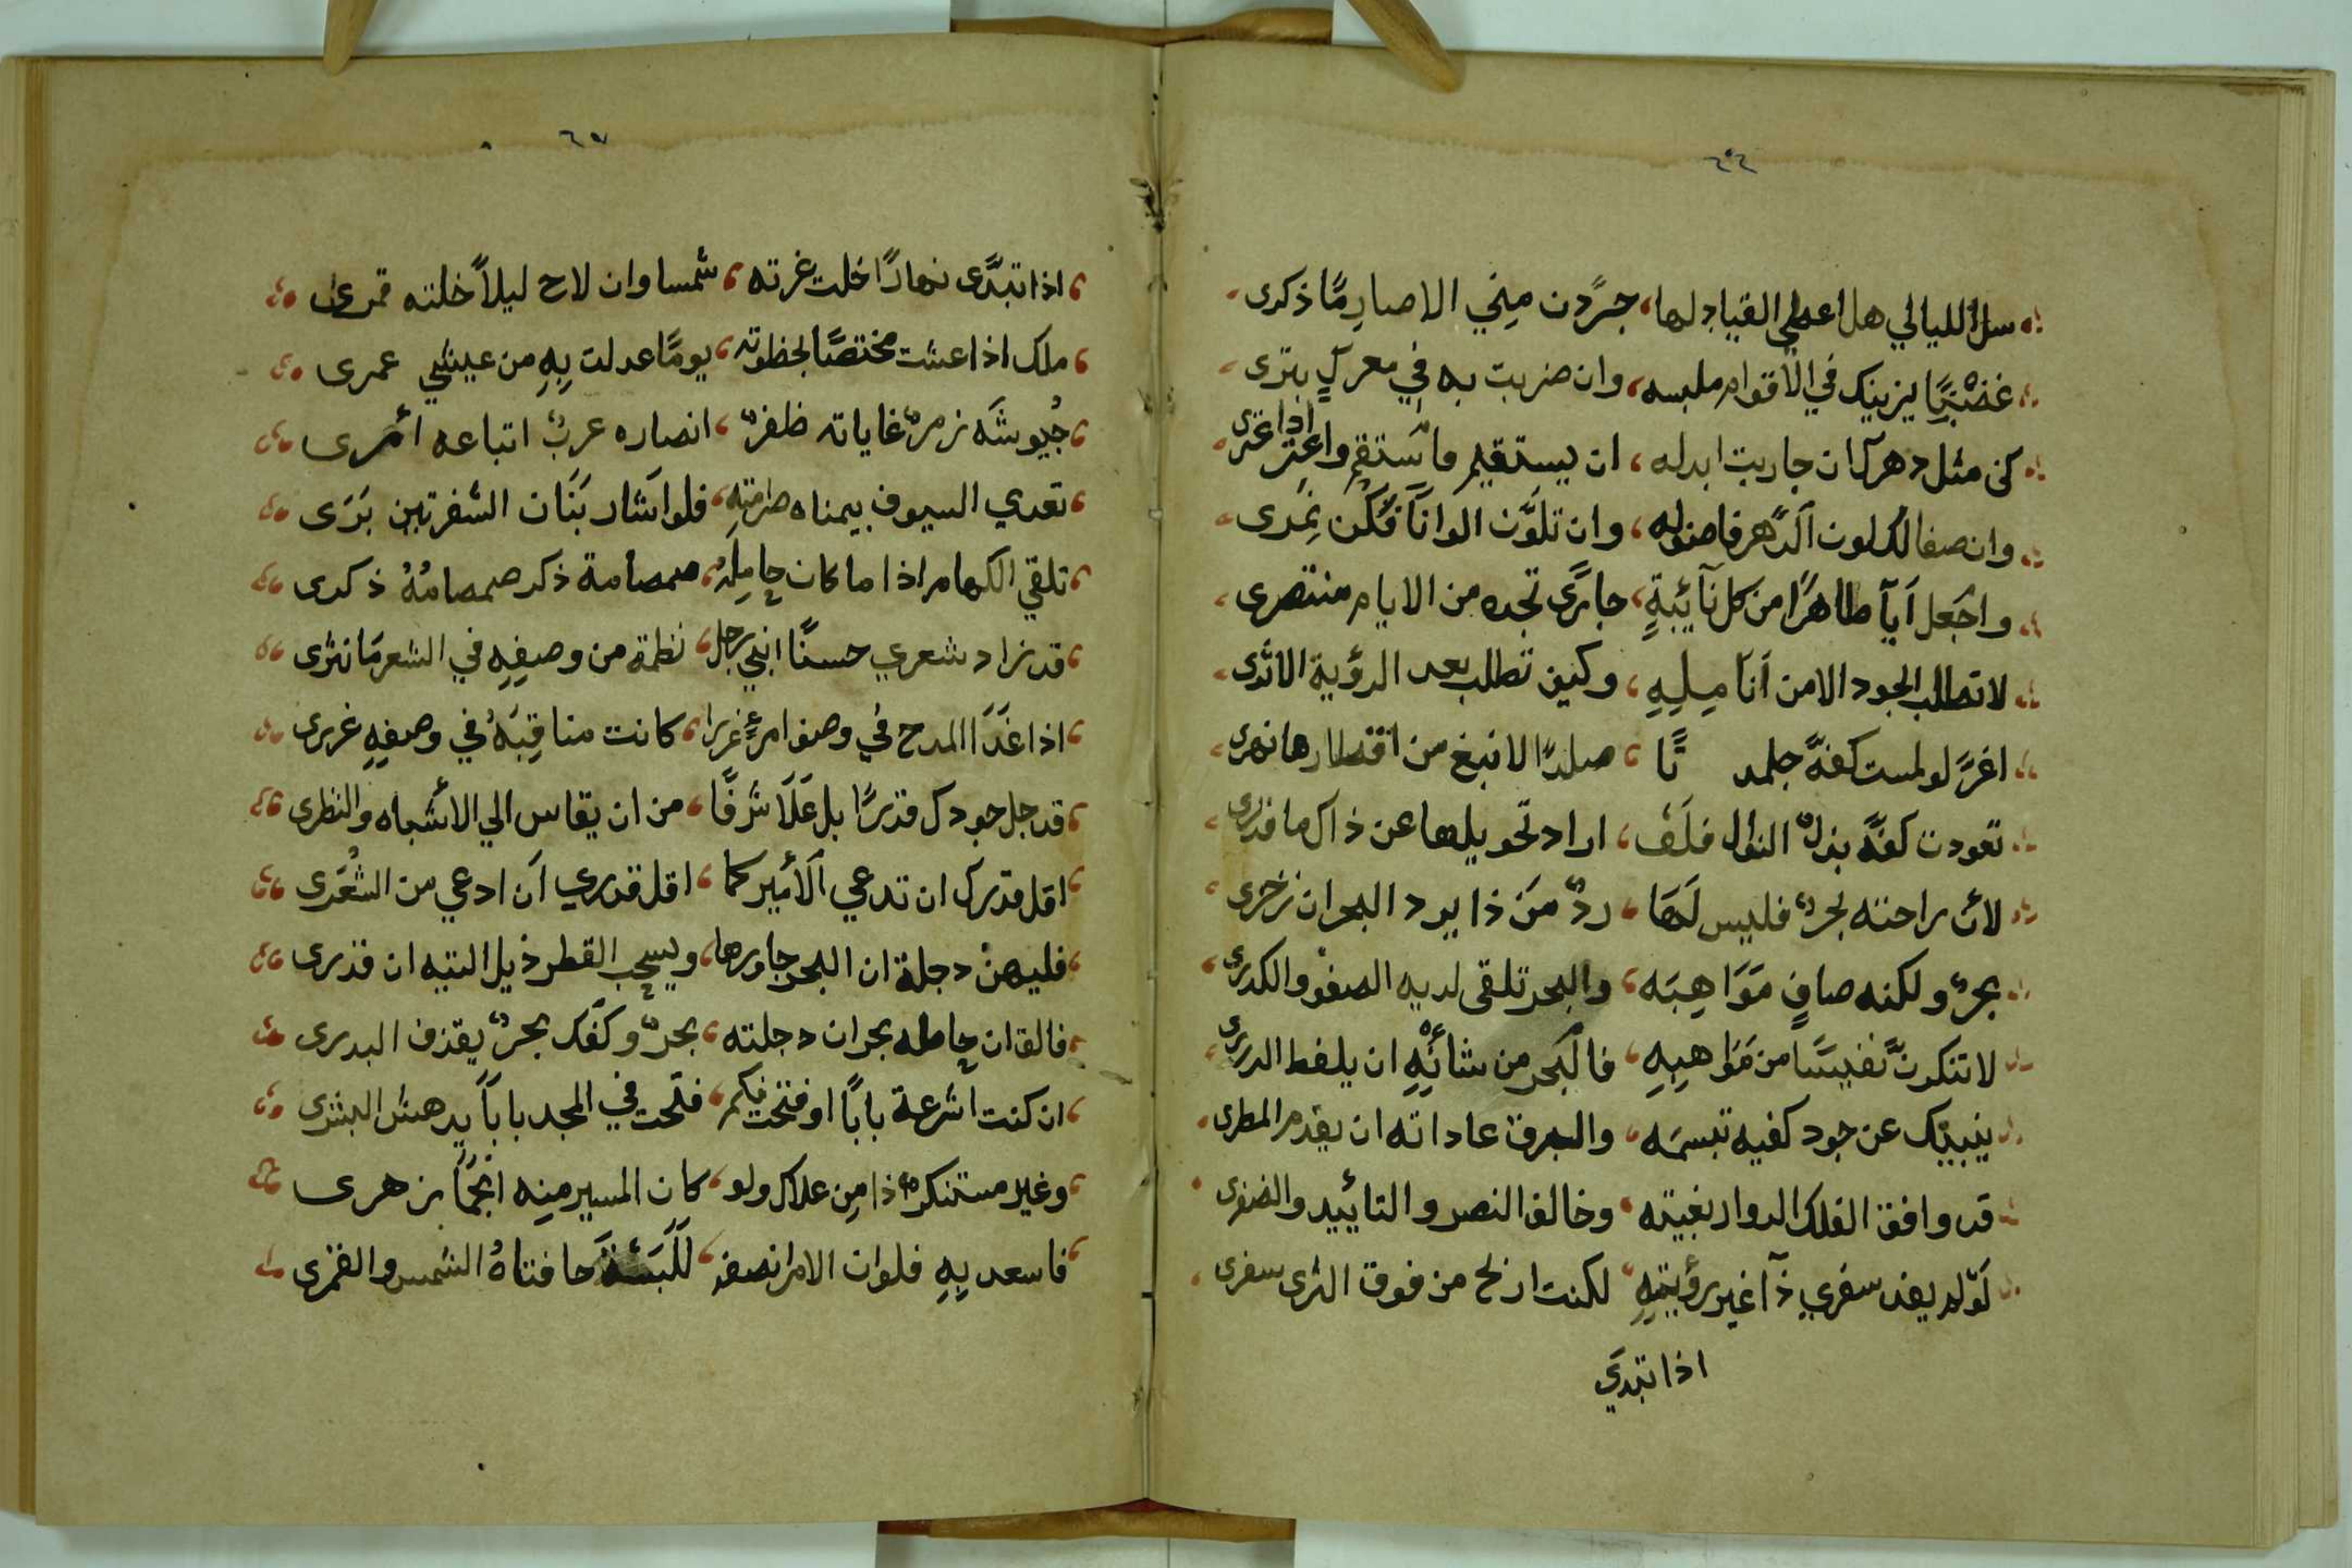 سل الليالي هل اعطي القياد لها، جرّدن مِنّي الا صارِمًا ذكرى
غضبًا يزينك في الاقوام ملبسه، وان ضربت به في معركٍ بترى
كن مثل دهرك ان جاريت ابدله، ان يستقيم فاستقم واعتر اذا اعترى
وان صفا لك لون الدّهر فاصفو له، وان تلوّن الوانًا فكن نمرى
واجعل اَيآ طاهرًا من كل نآئبةٍ، جارًى تجده من الايام منتصرى
لا تطلب الجود الا من اَنا مِلِهِ، وكيف تطلب بعد الرؤية الاثرى
اغرّ لو لمست كفهّ جلمد تًا، صلدًا لا نبغ من اقتطارها نهرى
تعودت كفهّ بذلٌ النوال فلَف، اراد تحويلها عن ذاك ما قدرى
لأن راحته بحرٌ فليس لَهَا، ردٌ مَن ذا يرد البحر ان زخرى
بحرٌ ولكنه صافٍ مَوَاهِبَه، والبحر تلقى لديه الصفو والكدرى
لا تنكرنّ نفيسًا من مَوَاهبِهِ، فالبَحر من شأنِهِ ان يلفط الدررى
ينبيك عن جود كفيه تبسمَه، والبرق عاداته ان يقدم المطرى
قد وافق الفلك الدوار بغيته، وخالف النصر والتاييد والضفرى
لَو لم يفد سفري ذآ غير رؤيتهِ، لكنت ارلح من فوق الثرى سفرى
اذا تبدَي
اذا تبدَّى نهارًا خلت غرته، شمسا وان لاح ليلاً خلته قمرى
ملك اذا عشت مختصًا بخظوته، يومًا عدلت بِهِ من عيشي عمرى
جُيوشَه زمرٌ غاياته ظفرٌ، انصاره عربٌ اتباعه اُمرى
تعدي السيوف بيمناه صرامتهِ، فلو اَشار بَنَان الشفرتين بَرَى
تلقي الكهام اذا ما كان حامِلُهُ، صمصامة ذكر صمصامُهُ ذكرى
قد زاد شعري حسنًا انني رجل، نظمته من وصفِهِ في الشعر مَا نثرى
اذا غَدَا المدح في وصف امرءٍ غررا، كانت مناقِبَهُ في وصفِهِ غررى
قد جل جودك قدرًا بل عَلَا شرفًا، من ان يقاس الي الأشباه والنظرى
اقل قدرك ان تدعي الأمير كما، اقل قدري اَن ادعي من الشُعَرى
فليهن دجلة ان البحر جاورها، ويسحب القطر ذيل التيه ان قذرى
فالق ان حاطه بحران دجلته، بحرٌ وكفّك بحرٌ يقذف البدرى
ان كنت اشرعة بابًا او فتحت فيكم، فتحت في المجد باباً يدهش البشرى
وغير مستنكرٌ ذا مِن علاك ولو، كان المسير مِنِه انجمًا زهرى
فاسعد بِهِ فلو ان الامر انصفه، حافتاهُ الشمس والقمرى